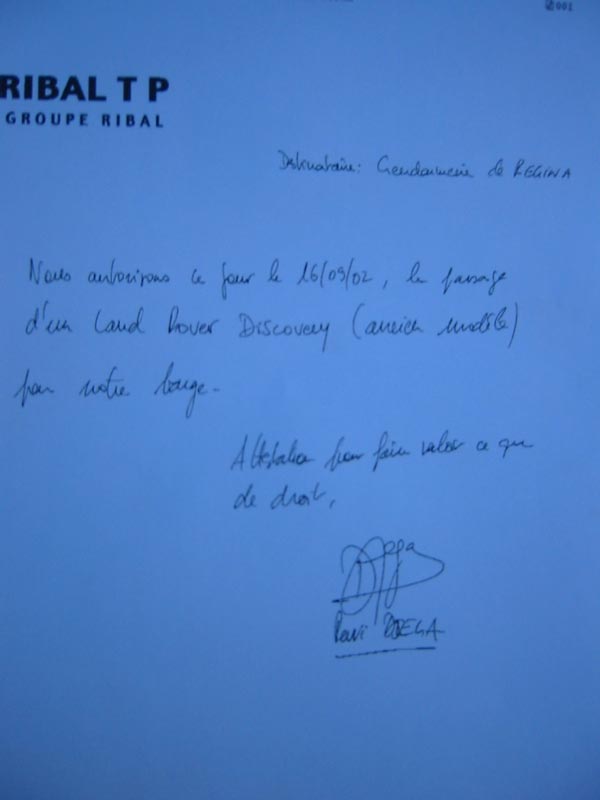 001
RIBAL T P
GROUPE RIBAL
Destinataire: Gendarmerie de REGINA
Nous autorisons ce jour le 16/09/02, le passage
d'un Land Rover Discovery (ancien modèle)
par notre barge.
Attestation pour faire valoir ce que
de droit,